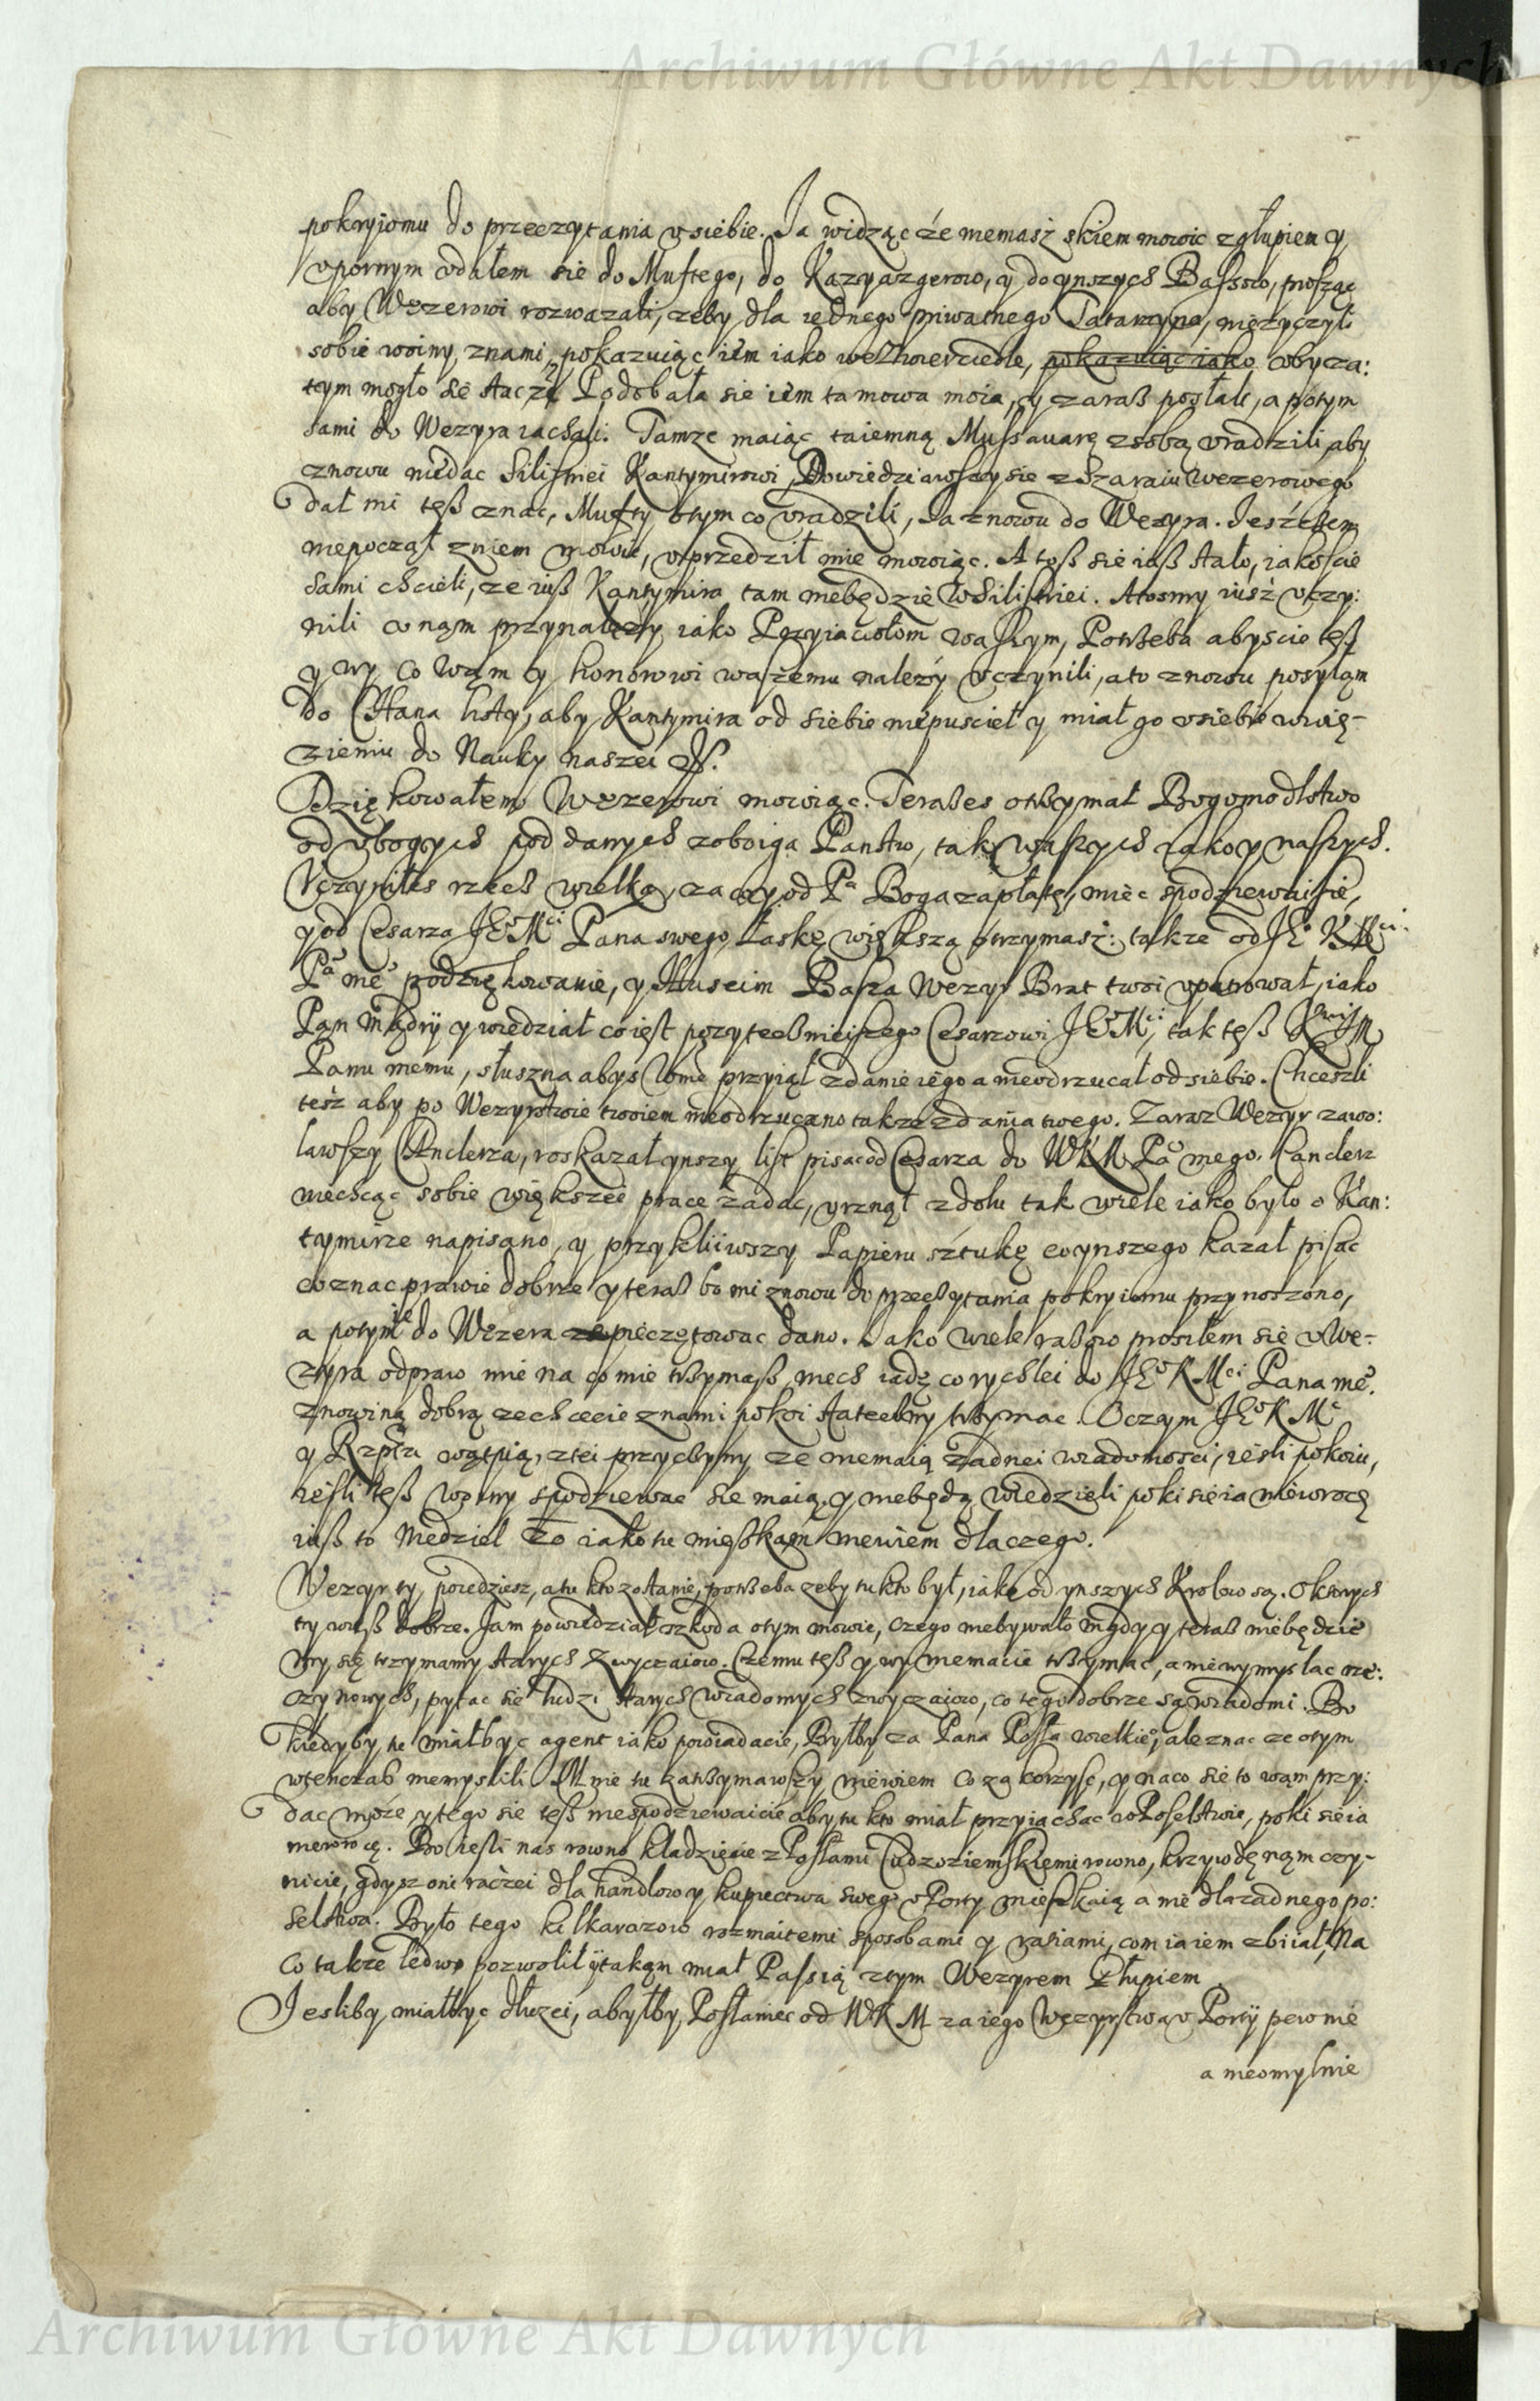 Archiwum Główne Akt Dawnych
pokryjomu do przeczytania v siebie. Ja widząc że niemasz skiem mowic z głupiem y
vpornym vdałem sie do Muftego, do Kazyazgerow, y do ynszych Bassow, prosząc
aby Wezerowi rozwazali, zeby dla iednego priwatnego Tatarzyna, nieżyczyli
sobie woiny znami, pokazuiąc iem iako we Zwierciedle, pokazuiąc iako obycza:
tym mogło sie stac. Podobała sie iem ta mowa moia, y zaraß posłali, a potym
sami do Wezyra iachali. Tamze maiąc taiemną Mussauarę z sobą vradzili, aby
znowu niedac Silistriei Kantymirowi, Dowiedziawszy sie z Szaraiu Wezerowego
dał mi teß znac, Mufty otym co vradzili, Ja znowu do Wezyra. Jeszczem
niepoczął zniem mowic, vprzedził mie mowiąc. A toß sie iuß stało, iakoscie
sami chcieli, ze iuß Kantymira tam niebędzie w Silistriei. A tosmy iusz vczy:
nili co nąm przynależy iako Przyiaciołom waszym, Potrzeba abyscie teß
y wy co wąm y honorowi waszemu należy vczynili, a to znowu posyłąm
do Hana listy, aby Kantymira od siebie niepusciel y miał go v siebie w wię-
zieniu do Nauky naszei
Dziękowałem Wezerowi mowiąc. Teraßes otrzymał Bogomodlstwo
od vbogych poddanych z oboiga Panstw, tak waszych iako y naszych.
Vczyniłes rzecz wielką, za co y od Pa Boga zapłatę miec spodziewai sie,
y od Cesarza JEoMci Pana swego Łaskę większą otrzymasz: takze od JEo KMci.
Pa mẽo podziękowanie, y Huseim Basza Wezyr Brat twoi vpatrował, iako
Pąn mądry y wiedział co iest pozytecznieiszego Cesarzowi JEoMci, tak teß
Panu memu, słuszna abys to mo przyiął zdanie iego a nieodrzucał od siebie. Chceszli
tesz aby po Wezyrstwie twoiem nieodrzucano takze zdania twego. Zaraz Wezyr zawo:
lawszy Canclerza, roskazał ynszy list pisac od Cesarza do WKM Pa mego. Canclerz
niechcąc sobie większei prace zadac, vrznął z dołu tak wiele iako było o Kan:
tymirze napisano, y przykliiwszy Papieru sztukę co ynszego kazał pisac
co znac prawie dobrze y teraß bo mi znowu do przeczytania pokryiomu przynoszono,
a potym ie do Wezera pieczętowac dano. Jako wiele raßow prosiłem się v We-
zyra odpraw mie na co mie trzymasß, niech iadę co rychlei do JEoKMci Pana mẽo.
z nowiną dobrą ze chcecie znami pokoi stateczny trzymac. O czym JEoKMc
y Rzpta wątpią, z tei przyczyny ze niemaią zadnei wiadomosci, iesli pokoiu,
iesli teß woiny spodziewac sie maią, y niebędą wiedzieli poki sie ia niewrocę
iuß to Niedziel 20 iako tu mieszkąm niewiem dlaczego.
Wezyr ty poiedziesz, a tu kto zostanie, potrzeba zeby tu kto był, iako od ynszych Krolow są. O ktorych
ty wiesß dobrze. Jam powiedział szkoda otym mowic, czego niebywało nigdy y teraß niebędzie
my się trzymamy starych zwyczaiow. Czemu teß y wy niemacie trzymac, a niewymyslac rze:
czy nowych, pytac sie ludzi starych wiadomych zwyczaiow, co tego dobrze są wiadomi. Bo
kiedyby tu miał byc agent iako powiadacie, Byłby za Pana Posła wielkieo, ale znac ze otym
wtenczaß niemyslili. Mnie tu zatrzymawszy niewiem co za korzysc, y naco się to wąm przy:
dac może, y tego sie teß niespodziewaicie aby tu kto miał przyiachac w Poselstwie, poki sie ia
niewrocę. Bo iesli nas rowno kładziecie z Posłami Cudzoziemskiemi rowno, krzywdę nąm czy-
nicie, gdysz oni raczei dla handlow y kupiectwa swego v Porty mieszkaią a nie dla zadnego po:
selstwa. Było tego kilka razow rozmaitemi sposobami y raziami, com ia iem zbiiał, Na
co takze ledwo pozwolił y takąm miał Passią z tym Wezyrem Głupiem.
Jesliby miał byc dłuzei, a byłby Posłaniec od WKM za iego Wezyrstwa v Porty pewnie
a nieomylnie
Archiwum Główne Akt Dawnych